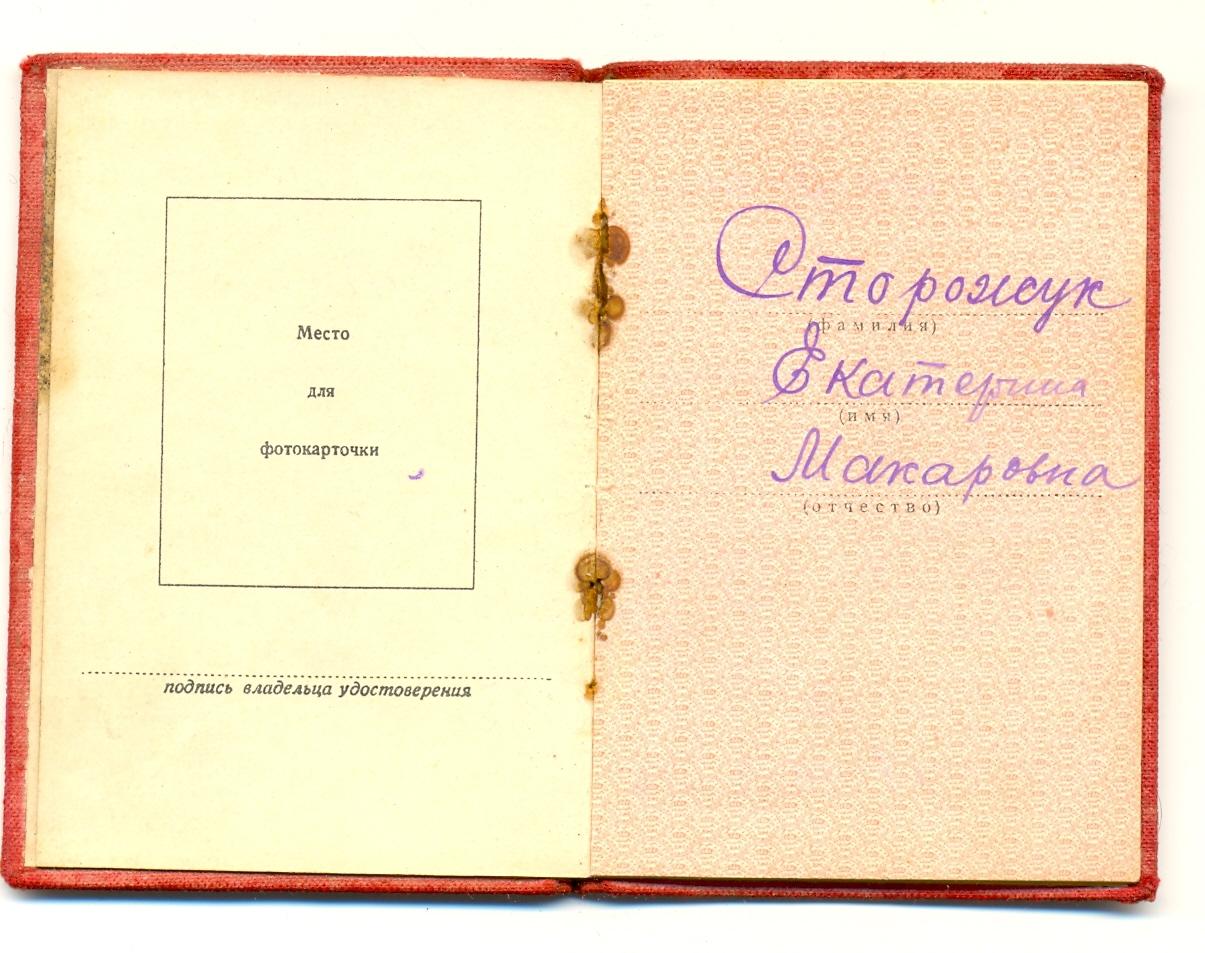 Место
для
фотокарточки
подпись владельца удостоверения
Сторожук
(фамилия)
Екатерина
(имя)
Макаровна
(отчество)